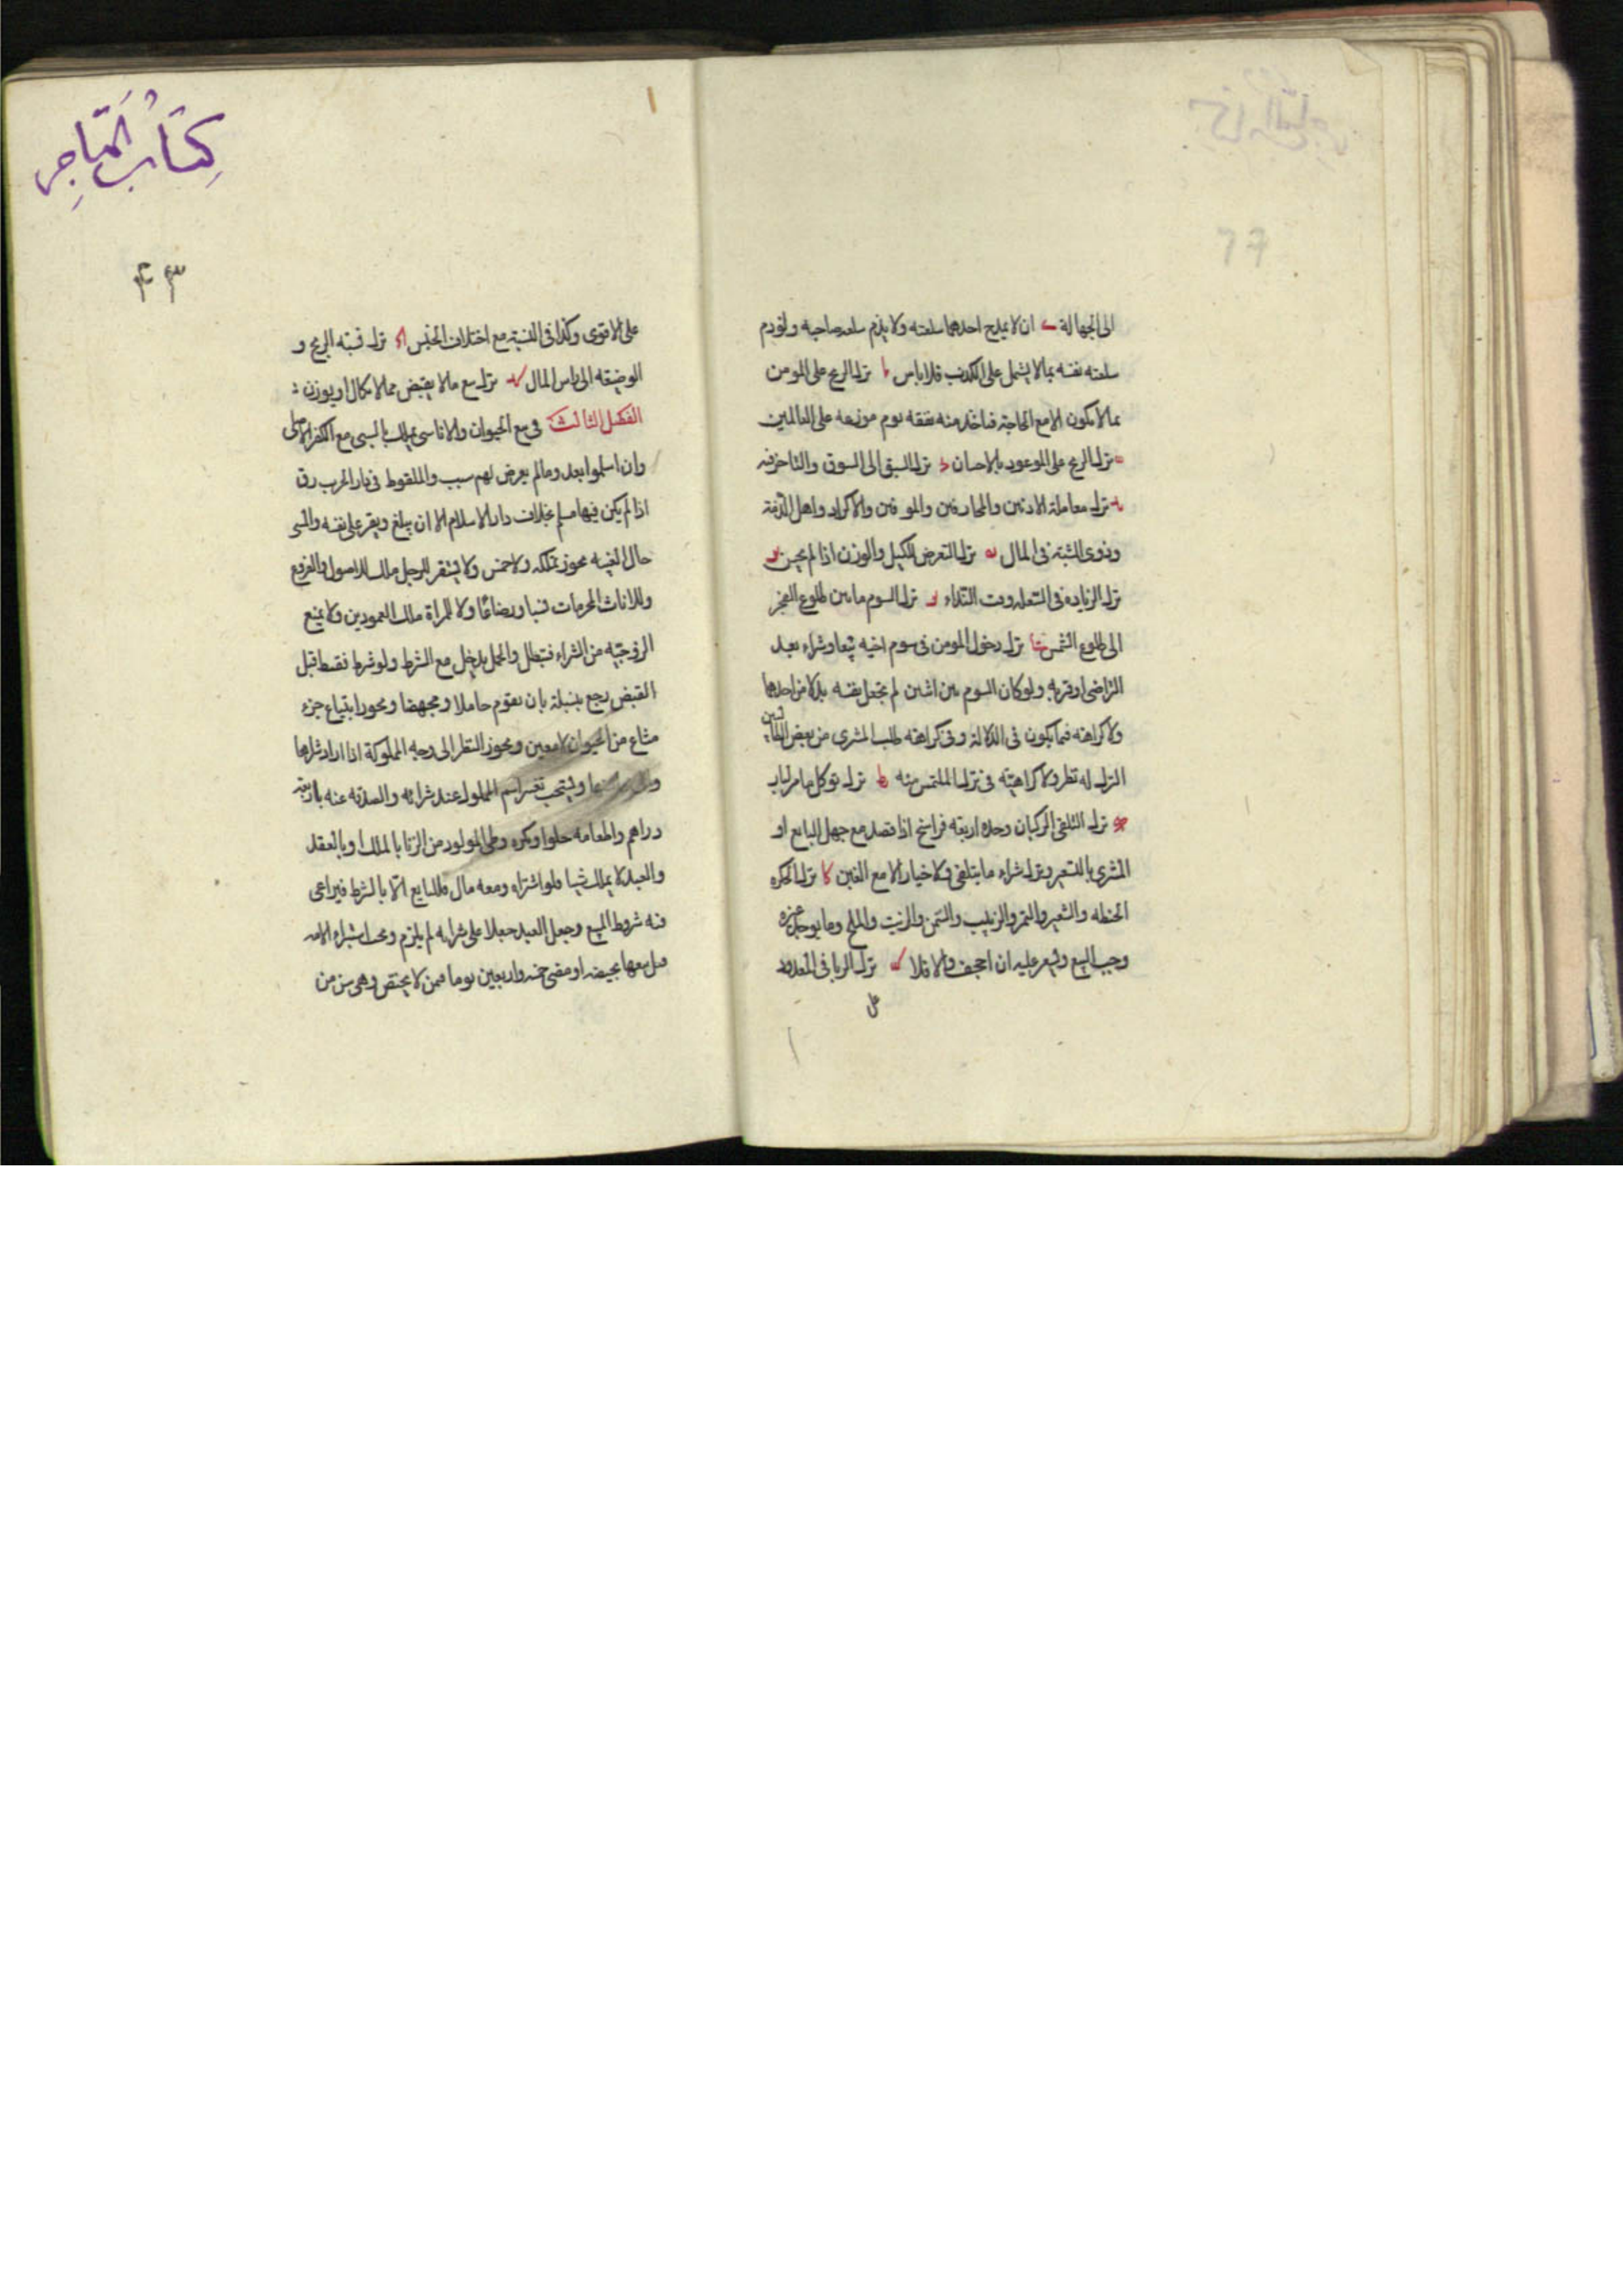 الى الجهالة ى ان لا يمدح احدهما سلعته ولا يذم سلعه صاحبه ولو ذم
سلعته نفسه بما لا يشتمل على الكذب فلا باس يا ترك الربح على المومن
بما لا يكون الا مع الحاجة فياخذ منه نفقة يوم موزعه على المعاملين
ترك الربح على الموعود بالاحسان ترك السبق الى السوق والتاخر فيه
ترك معاملة الادنين والمحارفين والموفين والاكراد واهل الذمة
وذوى الشبهة فى المال ترك التعرض للكيل والوزن اذا لم يحسن
ترك الزياده فى السلعة وقت النداء ترك السوم ما بين طلوع الفجر
الى طلوع الشمس ترك دخول المومن فى سوم اخيه بيعا وشراء بعد
التراضى او قربه ولو كان السوم بين اثنين لم يجعل نفسه بدلا من احدهما
ولا كراهته فيما يكون فى الدلالة وفى كراهته طلب المشترى من بعض الطالبين
الترك له نظر ولا كراهيّة فى ترك الملتمس منه يط ترك توكل حاضر لباد
ك ترك التلقى الركبان وحده اربعة فراسخ اذا قصد مع جهل البايع او
المشترى بالسعر وترك شراء ما يتلقى ولا خيار الا مع الغبن كا ترك الحكره
الحنطه والشعير والتمر والزبيب والسمن والزيت والملح وما يوجد غيره
وجب البيع ويسعر عليه ان اجحف والا فلا كب ترك الربا فى المعدود
على
كِتَابُ المَتَاجِرِ
٤٣
على الاقوى وكذا فى النسية مع اختلاف الجنس كج ترك نسبة الربح و
الوضيعة الى راس المال كد ترك بيع ما لا يقبض مما لا يكال او يوزن
الفصل الثالث فى بيع الحيوان والاناسى يملك بالسبى مع الكفر الاصلى
وان اسلموا بعد وما لم يعرض لهم سبب والملقوط فى دار الحرب رق
اذا لم يكن فيها مسلم بخلاف دار الاسلام الا ان يبلغ ويقر على نفسه والمسبى
حال الغيبه يجوز تملكه ولا خمس ولا يستقر للرجل ملك للاصول والفروع
وللاناث المحرمات نسبا ورضاعًا ولا للمراة ملك العمودين ولا يمنع
الزوجيّه من الشراء فتبطل والحمل يدخل مع الشرط ولو شرط فسقط قبل
القبض رجع بنسبته بان يقوم حاملا ومجهضا ويجوز ابتياع جزء
مشاع من الحيوان لا معين ويجوز النظر الى وجه المملوكة اذا اراد شراها
ويستحب تغير اسم المملوك عند شرائه والصدقه عنه باربعة
دراهم واطعامه حلوا وكره وطى المولود من الزنا بالملك او بالعقد
والعبد لا يملك شيا فلو اشتراه ومعه مال فللبايع الا بالشرط فيراعى
فيه شروط المبيع وجعل العبد جعلا على شرايه لم يلزم ويجب استبراء الامه
قبل بيعها بحيضه او مضى خمسة واربعين يوما فيمن لا يحيض وهى فى سن من